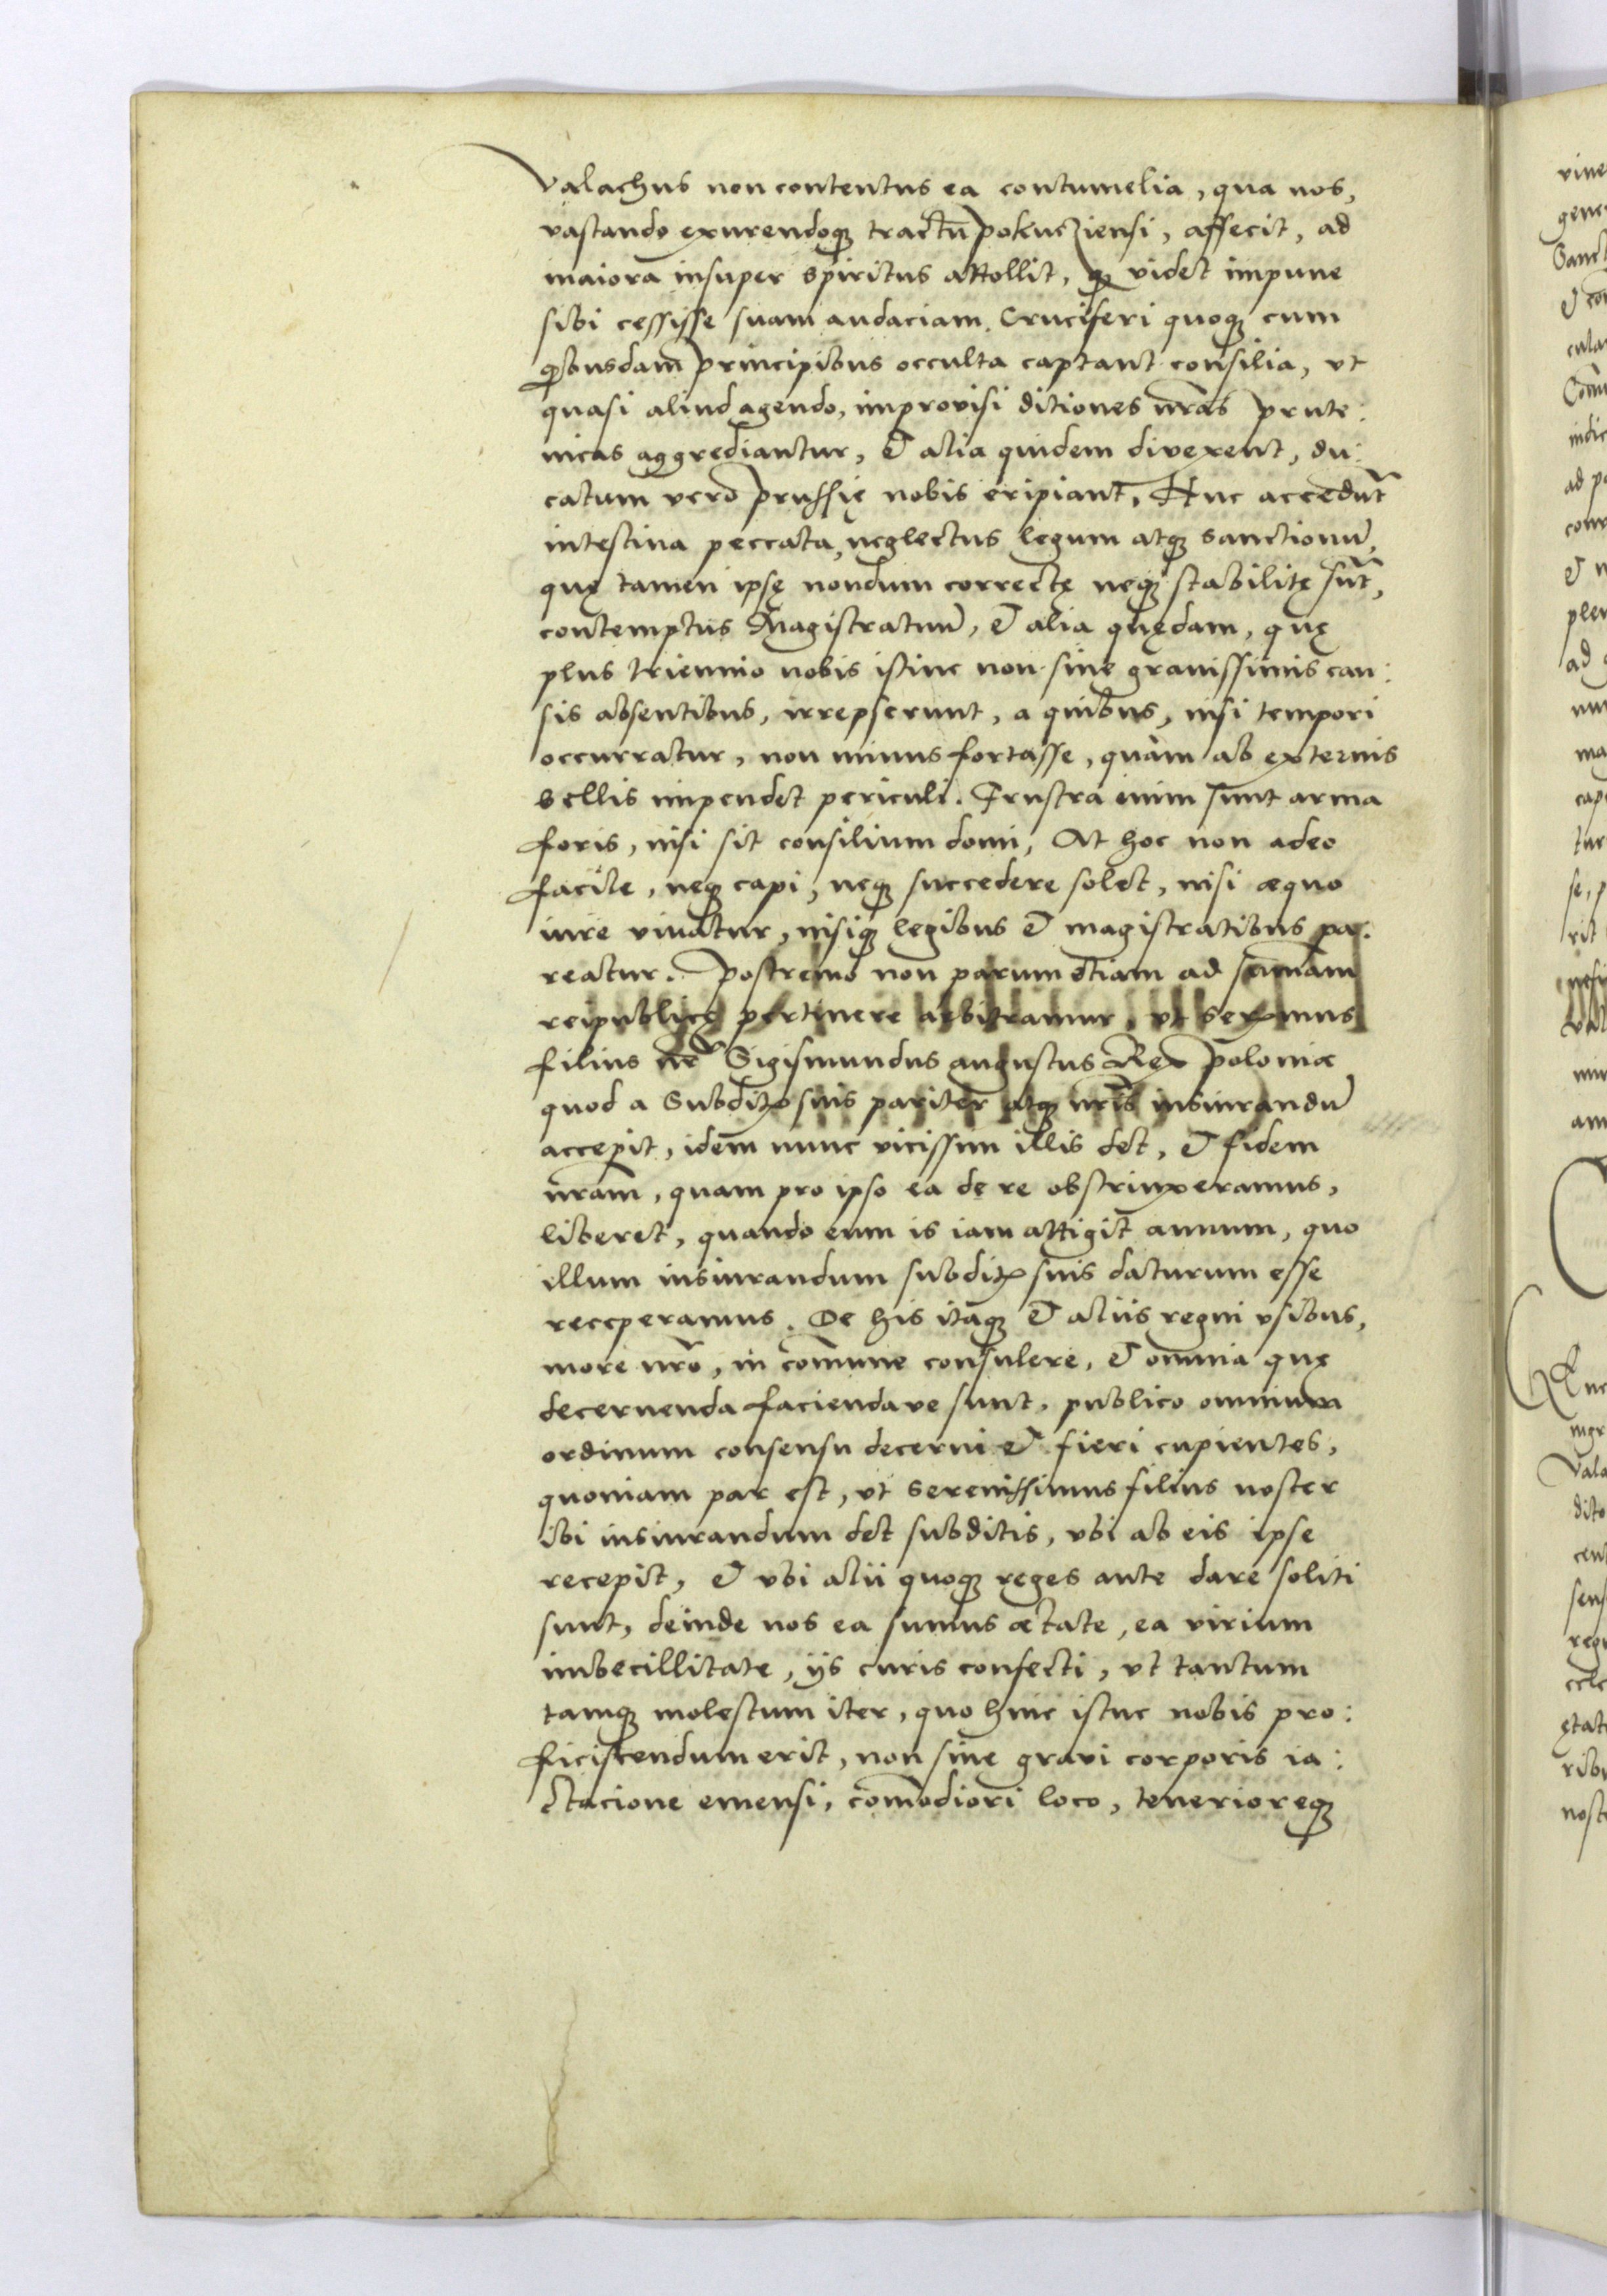 Valachus non contentus ea contumelia, qua nos,
vastando exurendoq3 tractū Pokucziensi, affecit, ad
maiora insuper spiritus attollit, q3 videt impune
sibi cessisse suam audaciam. Cruciferi quoq3 cum
qibusdam Principibus occulta captant consilia, vt
quasi aliud agendo, improvisi ditiones nr̄as Prute:
nicas aggrediantur, & alia quidem divexent, du:
catum vero Prussię nobis eripiant, Huc accedūt
intestina peccata, neglectus legum atq3 sanctionū,
quę tamen ipsę nondum correctę neq3 stabilitę sūt,
contemptus Magistratuū, & alia quędam, quę
plus triennio nobis istinc non sine gravissimis cau:
sis absentibus, irrepserunt, a quibus, nisi tempori
occurratur, non minus fortasse, quàm ab externis
bellis impendet periculi. Frustra enim sunt arma
foris, nisi sit consilium domi, At hoc non adeo
facile, neq3 capi, neq3 succedere solet, nisi æquo
iure vivatur, nisiq3 legibus & magistratibus pa:
reatur. Postremo non parum etiam ad sum̄am
reipublicę pertinere arbitramur, vt Serenimus
filius nr̄ Sigismundus augustus Rex Poloniæ
quod a Subditis suis pariter atq3 nr̄is iusiurandū
accepit, idem nunc vicissim illis det, & fidem
nr̄am, quam pro ipso ea de re obstrinxeramus,
liberet, quando eum is iam attigit annum, quo
illum iusiurandum subditis suis daturum esse
receperamus. De his itaq3 & aliis regni vsibus,
more nr̄o, in com̄une consulere, & omnia quę
decernenda faciendave sunt, publico omnium
ordinum consensu decerni & fieri cupientes,
quoniam par est, vt Serenissimus filius noster
ibi iusiurandum det subditis, vbi ab eis ipse
recepit, & vbi alii quoq3 reges ante dare soliti
sunt, deinde nos ea sumus ætate, ea virium
imbecillitate, ijs curis confecti, vt tantum
tamq3 molestum iter, quo hinc istuc nobis pro:
ficiscendum erit, non sine gravi corporis ia:
ctacione emensi, com̄odiori loco, tenerioreq3